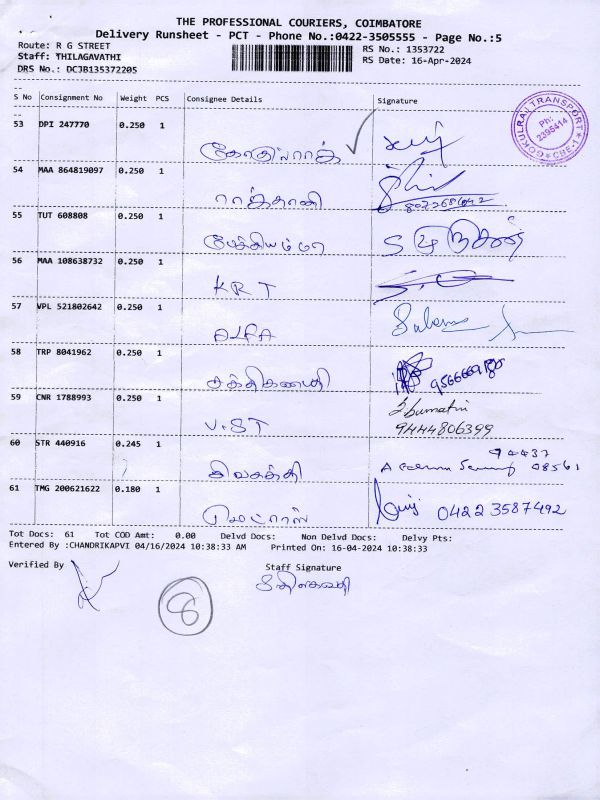 THE PROFESSIONAL COURIERS, COIMBATORE
Delivery Runsheet - PCT - Phone No.:0422-3505555 - Page No.:5
Route: R G STREET
RS No.: 1353722
Staff: THILAGAVATHI
RS Date: 16-Apr-2024
DRS No.: DCJB135372205
S No Consignment No Weight PCS Consignee Details Signature
GOKULRAJ TRANSPORT
Ph: 2395414
CBE-1
53 DPI 247770 0.250 1
கோகுல்ராஜ்
54 MAA 864819097 0.250 1
ராஜ்தானி
55 TUT 608808 0.250 1
56 MAA 108638732 0.250 1
KRT
57 VPL 521802642 0.250 1
58 TRP 8041962 0.250 1
சக்திகணபதி 9566669180
59 CNR 1788993 0.250 1
V.ST 9444806399
60 STR 440916 0.245 1
சிவசக்தி 94437 08561
61 TMG 200621622 0.180 1
மெட்ராஸ் 0422 3587492
Tot Docs: 61 Tot COD Amt: 0.00 Delvd Docs: Non Delvd Docs: Delvy Pts:
Entered By :CHANDRIKAPVI 04/16/2024 10:38:33 AM Printed On: 16-04-2024 10:38:33
Verified By Staff Signature
8